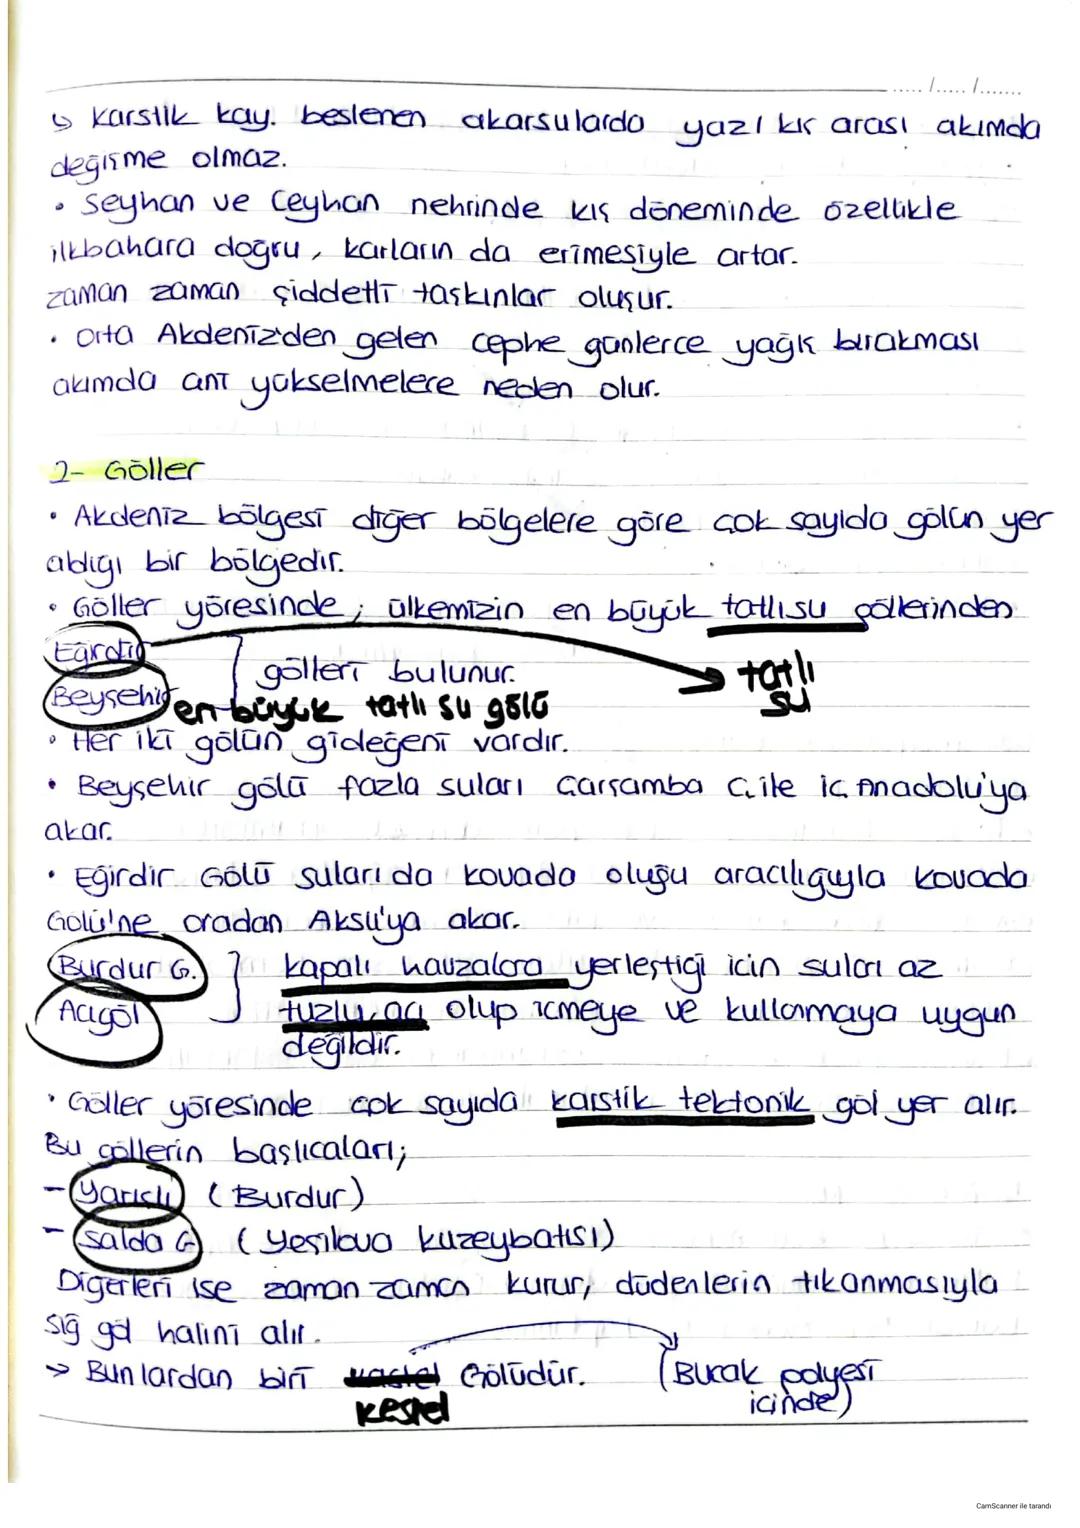 ..... /..... /.......
↳ Karstik kay. beslenen akarsularda yazı kış arası akımda
değişme olmaz.
• Seyhan ve Ceyhan nehrinde kış döneminde özellikle
ilkbahara doğru, karların da erimesiyle artar.
zaman zaman şiddetli taşkınlar oluşur.
• Orta Akdeniz'den gelen cephe günlerce yağış bırakması
akımda ani yükselmelere neden olur.
2- Göller
• Akdeniz bölgesi diğer bölgelere göre çok sayıda gölün yer
aldığı bir bölgedir.
• Göller yöresinde; ülkemizin en büyük tatlısu göllerinden
Eğirdir
gölleri bulunur. → tatlı su
Beyşehir en büyük tatlı su gölü
• Her iki gölün gideğeni vardır.
• Beyşehir gölü fazla suları Çarşamba Ç. ile iç Anadolu'ya
akar.
• Eğirdir Gölü suları da kovada oluğu aracılığıyla kovada
Gölü'ne oradan Aksu'ya akar.
Burdur G. kapalı havzalara yerleştiği için suları az
Acıgöl tuzlu, acı olup içmeye ve kullanmaya uygun
değildir.
• Göller yöresinde çok sayıda karstik tektonik göl yer alır.
Bu göllerin başlıcaları;
- Yarışlı (Burdur)
- Salda G. (Yeşilova kuzeybatısı)
Diğerleri ise zaman zaman kurur, düdenlerin tıkanmasıyla
sığ göl halini alır.
→ Bunlardan biri kestel Gölüdür. (Bucak polyesi
içinde)
CamScanner ile tarandı